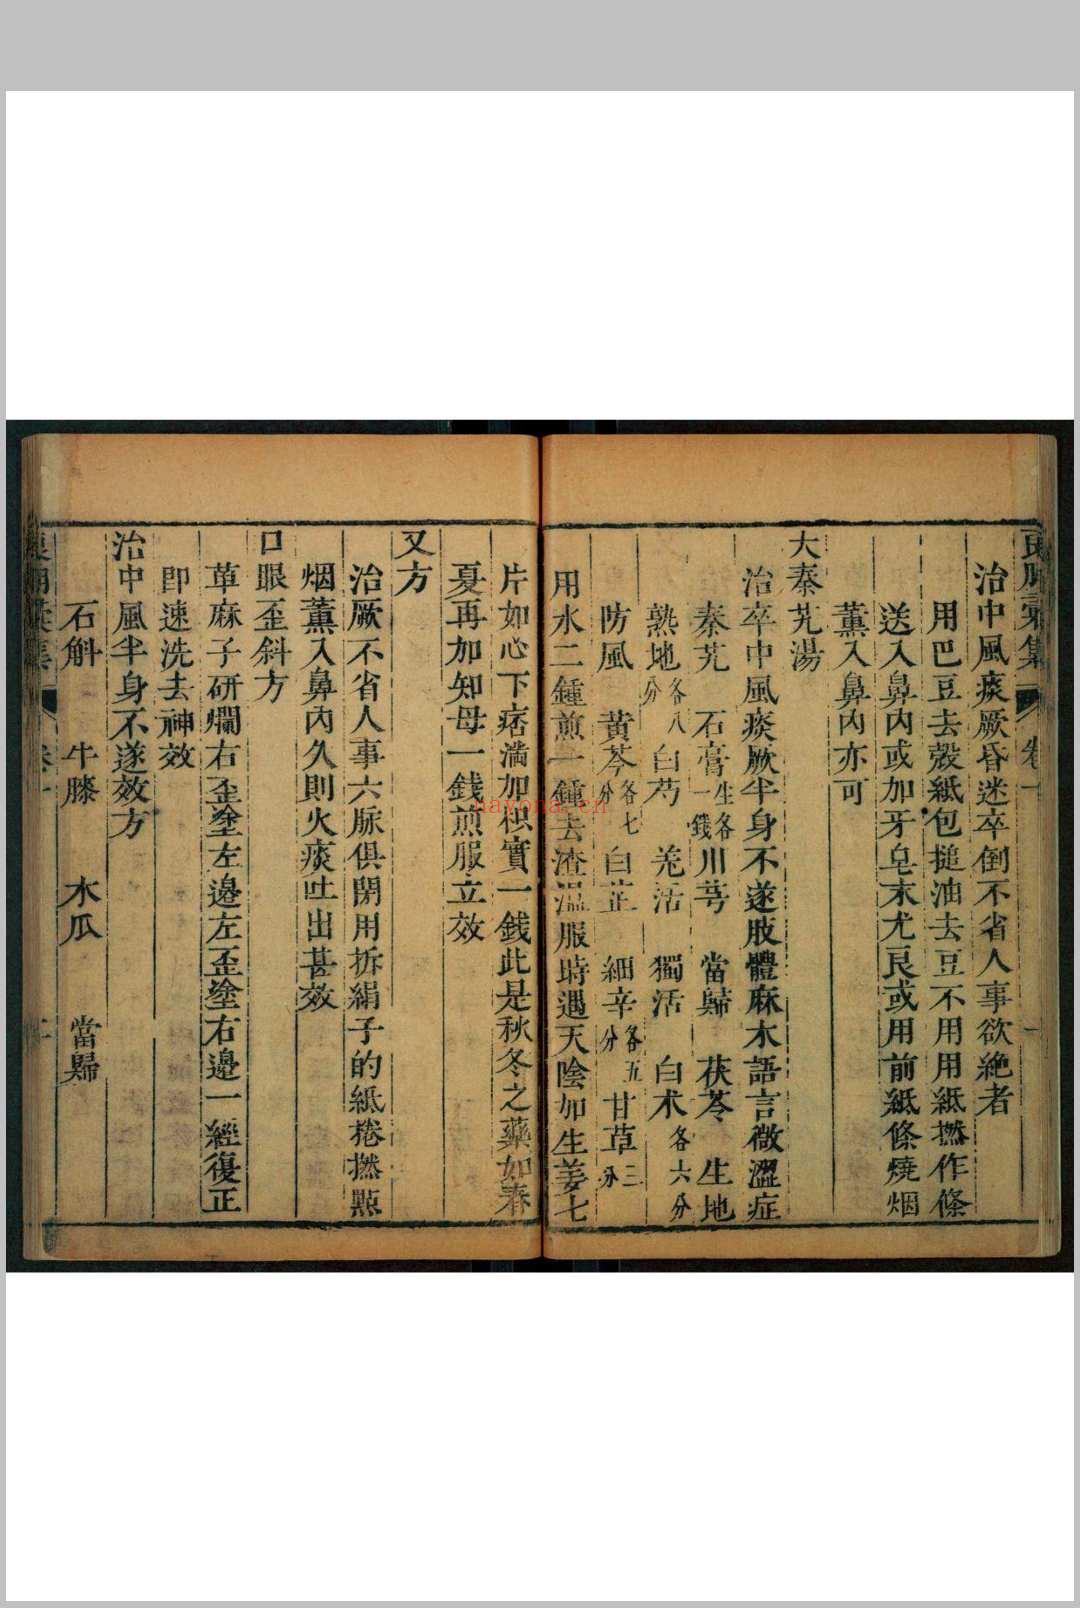 治中風痰厥昏迷卒倒不省人事欲絶者
用巴豆去殼紙包搥油去豆不用用紙撚作條
送入鼻內或加牙皂末尤良或用前紙條燒烟
薰入鼻內亦可
大秦艽湯
治卒中風痰厥半身不遂肢體麻木語言微澀症
秦艽 石膏生各一錢 川芎 當歸 茯苓 生地
熟地各八分 白芍 羌活 獨活 白术各六分
防風 黄芩各七分 白芷 細辛各五分 甘草二分
用水二鍾煎一鍾去渣温服時遇天陰加生姜七
片如心下痞满加枳實一錢此是秋冬之藥如春
夏再加知母一錢煎服立效
又方
治厥不省人事六脉俱閉用拆絹子的紙捲撚點
烟薰入鼻內久則火痰吐出甚效
口眼歪斜方
草麻子研爛右歪塗左邊左歪塗右邊一經復正
即速洗去神效
治中風半身不遂效方
石斛 牛膝 木瓜 當歸
nayona.cn